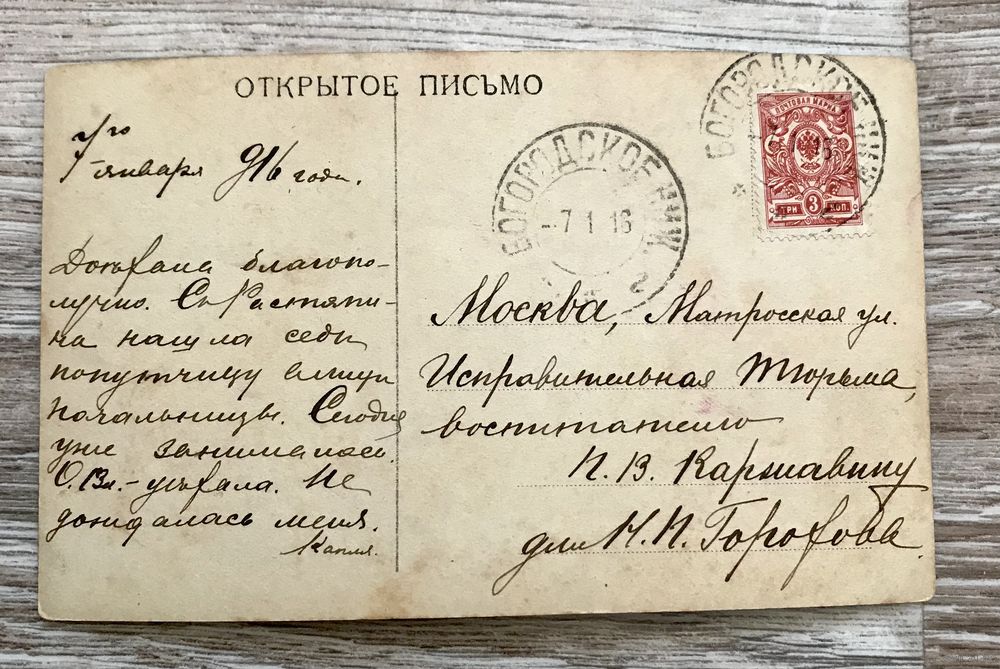 ОТКРЫТОЕ ПИСЬМО
7/го января 916 года.
Доѣхала благопо-
лучно. Съ Растяпи-
на нашла себѣ
попутчицу в лице
начальницы. Сегодня
уже занималась.
О. Вл. - уѣхала. Не
дождалась меня.
Капля.
БОГОРОДСКОЕ НИЖ
-7 1 16
2
БОГОРОДСКОЕ НИЖ
ПОЧТОВАЯ МАРКА
ТРИ 3 КОП.
Москва, Матросская ул.
Исправительная Тюрьма,
воспитателю
П. В. Каржавину
для Н. П. Горохова